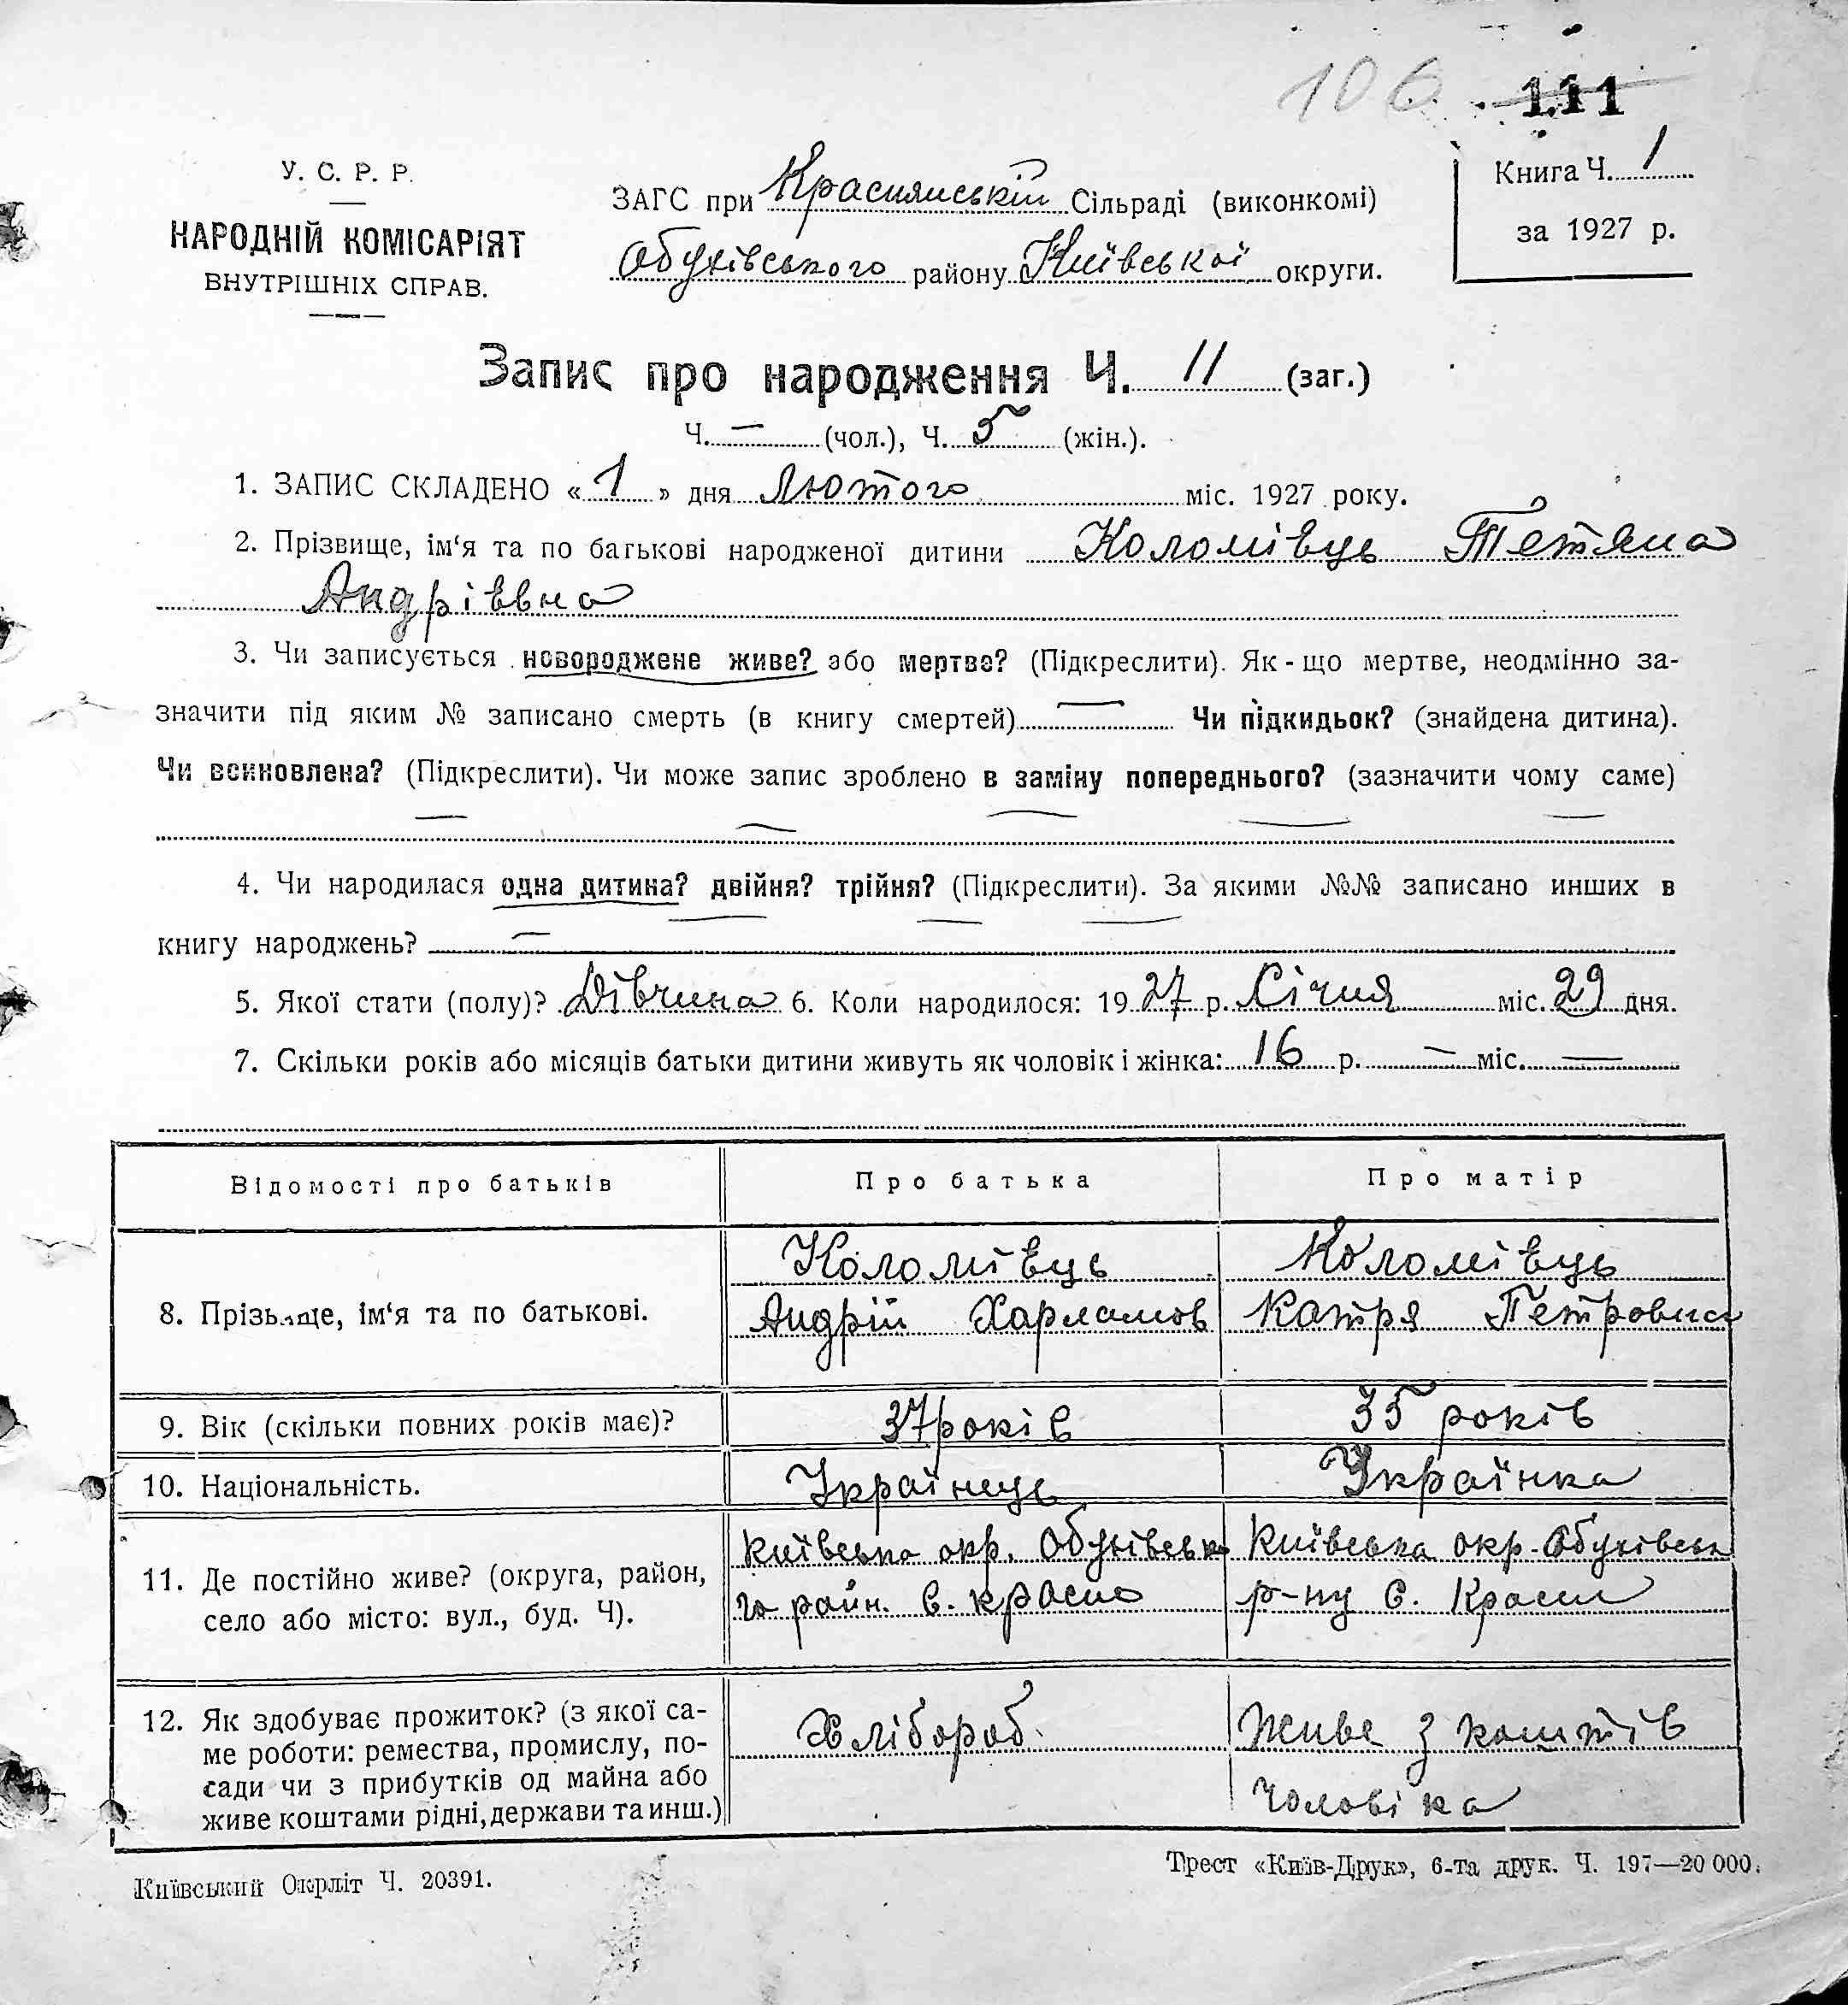 106 111
У. С. Р. Р.
НАРОДНІЙ КОМІСАРІЯТ
ВНУТРІШНІХ СПРАВ.
ЗАГС при Краснянській Сільраді (виконкомі)
Обухівського району Київської округи.
Книга Ч. 1
за 1927 р.
Запис про народження Ч. 11 (заг.)
Ч. — (чол.), Ч. 5 (жін.).
1. ЗАПИС СКЛАДЕНО « 1 » дня Лютого міс. 1927 року.
2. Прізвище, ім‘я та по батькові народженої дитини Коломієць Тетяна
Андріївна
3. Чи записується новороджене живе? або мертве? (Підкреслити). Як-що мертве, неодмінно за-
значити під яким № записано смерть (в книгу смертей) — Чи підкидьок? (знайдена дитина).
Чи всиновлена? (Підкреслити). Чи може запис зроблено в заміну попереднього? (зазначити чому саме)
4. Чи народилася одна дитина? двійня? трійня? (Підкреслити). За якими №№ записано инших в
книгу народжень? —
5. Якої стати (полу)? Дівчина 6. Коли народилося: 1927 р. Січня міс. 29 дня.
7. Скільки років або місяців батьки дитини живуть як чоловік і жінка: 16 р. — міс. —
Відомості про батьків Про батька Про матір
8. Прізвище, ім‘я та по батькові.
Коломієць
Андрій Харламов
Коломієць
Катря Петровна
9. Вік (скільки повних років має)? 37 років 35 років
10. Національність. Українець Українка
11. Де постійно живе? (округа, район,
село або місто: вул., буд. Ч).
Київська окр. Обухівсько
го райн. с. Красна
Київська окр. Обухівськ
р-ну с. Красна
12. Як здобуває прожиток? (з якої са-
ме роботи: ремества, промислу, по-
сади чи з прибутків од майна або
живе коштами рідні, держави та инш.)
Хлібороб.
Живе з коштів
Чоловіка
Київський Окрліт Ч. 20391.
Трест «Київ-Друк», 6-та друк. Ч. 197—20 000.